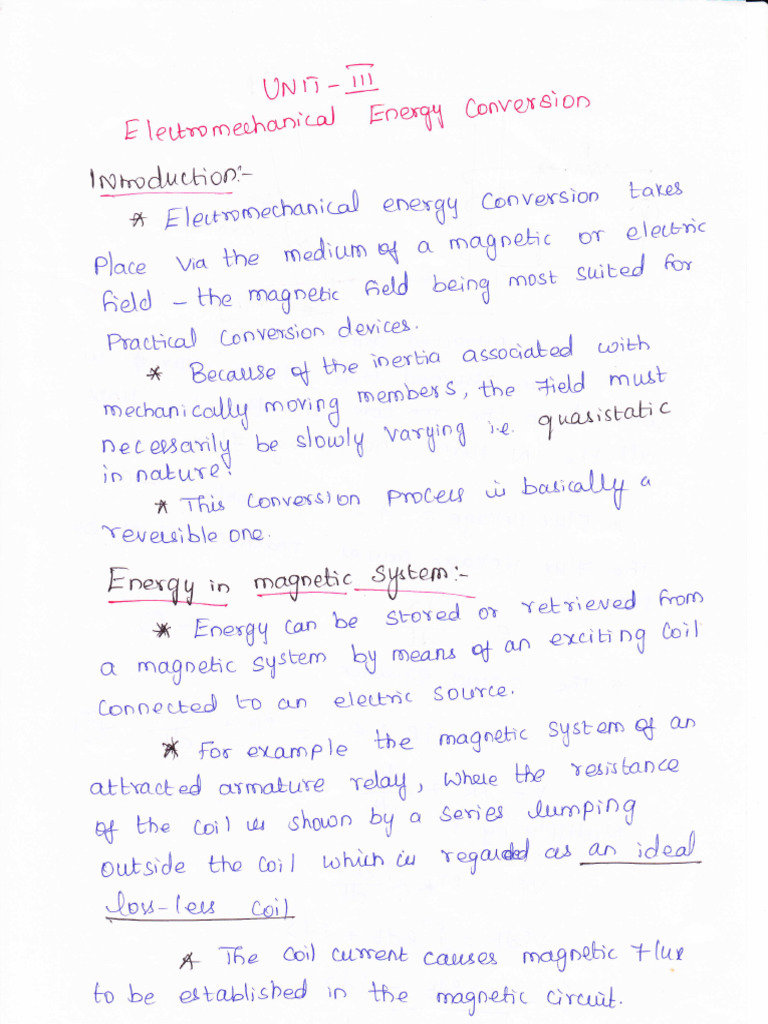 UNIT-III
Electromechanical Energy Conversion
Introduction:-
* Electromechanical energy conversion takes
place via the medium of a magnetic or electric
field - the magnetic field being most suited for
Practical conversion devices.
* Because of the inertia associated with
mechanically moving members, the Field must
necessarily be slowly varying i.e. quasistatic
in nature.
* This conversion process is basically a
reversible one.
Energy in magnetic System:-
* Energy can be stored or retrieved from
a magnetic system by means of an exciting coil
connected to an electric source.
* For example the magnetic system of an
attracted armature relay, where the resistance
of the coil is shown by a series lumping
outside the coil which is regarded as an ideal
loss-less coil
* The coil current causes magnetic Flux
to be established in the magnetic circuit.